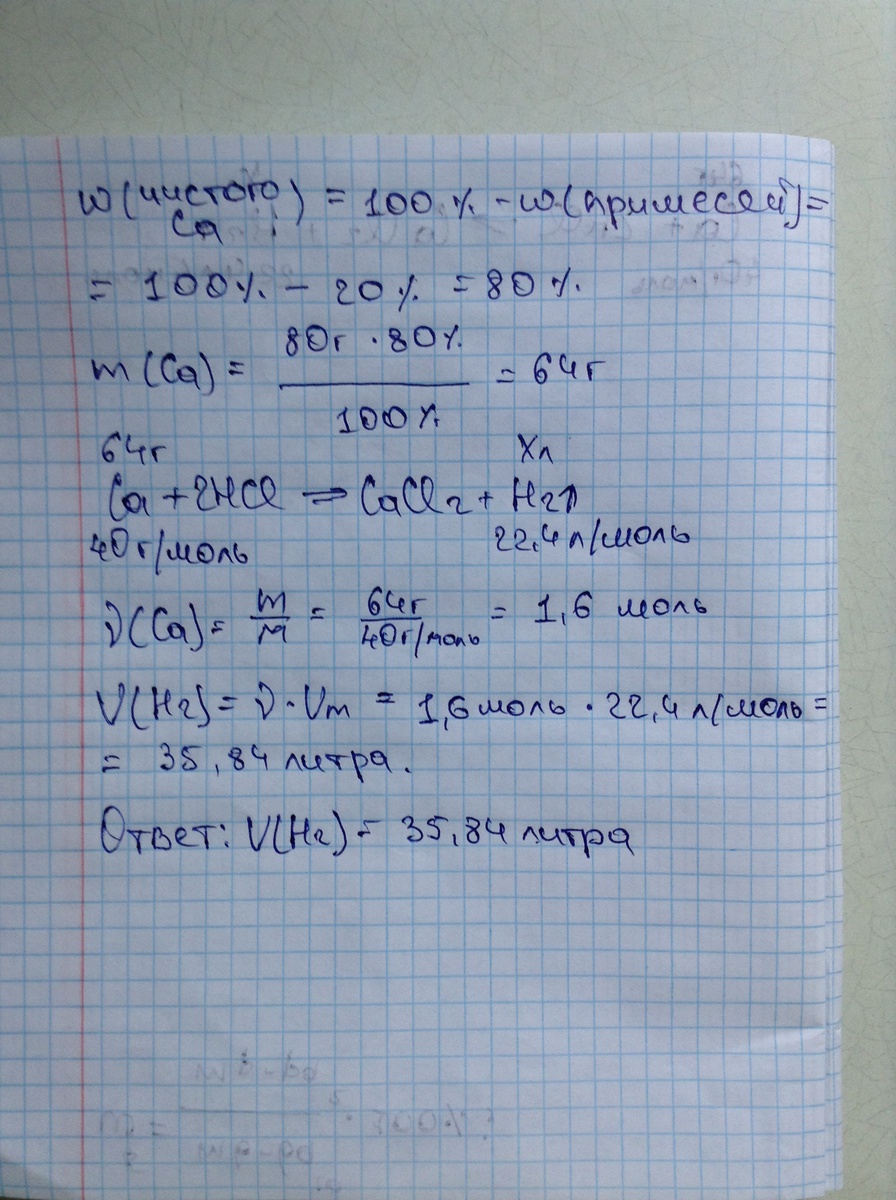 w(чистого Ca) = 100% - w(примесей) =
= 100% - 20% = 80%
m(Ca) = 80г · 80% / 100% = 64г
64г Xл
Ca + 2HCl => CaCl2 + H2↑
40г/моль 22,4 л/моль
ν(Ca) = m/M = 64г/40г/моль = 1,6 моль
V(H2) = ν · Vm = 1,6 моль · 22,4 л/моль =
= 35,84 литра.
Ответ: V(H2) = 35,84 литра